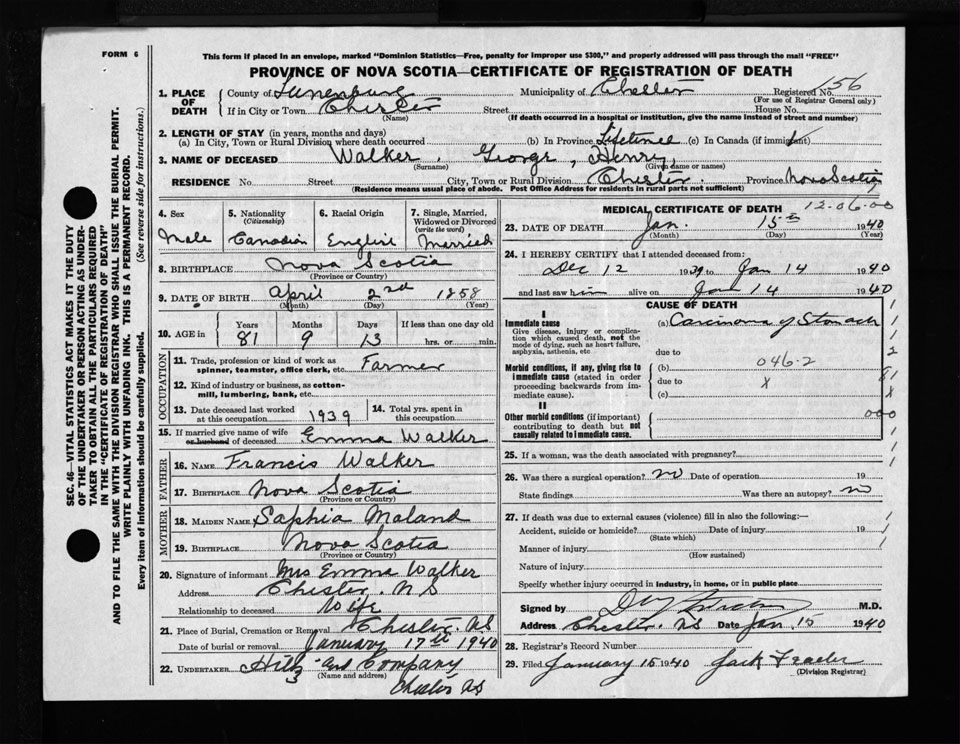 FORM 6
This form if placed in an envelope, marked "Dominion Statistics—Free, penalty for improper use $300," and properly addressed will pass through the mail "FREE"
PROVINCE OF NOVA SCOTIA—CERTIFICATE OF REGISTRATION OF DEATH
SEC. 46—VITAL STATISTICS ACT MAKES IT THE DUTY
OF THE UNDERTAKER OR PERSON ACTING AS UNDER-
TAKER TO OBTAIN ALL THE PARTICULARS REQUIRED
IN THE "CERTIFICATE OF REGISTRATION OF DEATH"
AND TO FILE THE SAME WITH THE DIVISION REGISTRAR WHO SHALL ISSUE THE BURIAL PERMIT.
WRITE PLAINLY WITH UNFADING INK. THIS IS A PERMANENT RECORD.
Every item of information should be carefully supplied. (See reverse side for instructions.)
1. PLACE OF DEATH County of Lunenburg Municipality of Chester Registered No. 156
(For use of Registrar General only)
If in City or Town Chester Street House No.
(Name) (If death occurred in a hospital or institution, give the name instead of street and number)
2. LENGTH OF STAY (in years, months and days)
(a) In City, Town or Rural Division where death occurred (b) In Province Lifetime (c) In Canada (if immigrant)
3. NAME OF DECEASED Walker. George, Henry,
(Surname) (Given name or names)
RESIDENCE No. Street City, Town or Rural Division Chester. Province Nova Scotia
(Residence means usual place of abode. Post Office Address for residents in rural parts not sufficient)
4. Sex Male
5. Nationality (Citizenship) Canadian
6. Racial Origin English
7. Single, Married, Widowed or Divorced (write the word) Married
8. BIRTHPLACE Nova Scotia
(Province or Country)
9. DATE OF BIRTH April 2nd 1858
(Month) (Day) (Year)
10. AGE in Years 81 Months 9 Days 13 If less than one day old hrs. or min.
OCCUPATION
11. Trade, profession or kind of work as spinner, teamster, office clerk, etc. Farmer
12. Kind of industry or business, as cotton-mill, lumbering, bank, etc.
13. Date deceased last worked at this occupation 1939
14. Total yrs. spent in this occupation
15. If married give name of wife or husband of deceased Emma Walker
FATHER
16. NAME Francis Walker
17. BIRTHPLACE Nova Scotia
(Province or Country)
MOTHER
18. MAIDEN NAME Saphia Moland
19. BIRTHPLACE Nova Scotia
(Province or Country)
20. Signature of informant Mrs Emma Walker
Address Chester. N S
Relationship to deceased Wife
21. Place of Burial, Cremation or Removal Chester. N S
Date of burial or removal January 17th 1940
22. UNDERTAKER Hiltz and Company
(Name and address)
Chester NS
MEDICAL CERTIFICATE OF DEATH 12-06-00
23. DATE OF DEATH Jan. 15th 1940
(Month) (Day) (Year)
24. I HEREBY CERTIFY that I attended deceased from:
Dec 12 1939 to Jan 14 1940
and last saw him alive on Jan 14 1940
CAUSE OF DEATH
I
Immediate cause
Give disease, injury or complication which caused death, not the mode of dying, such as heart failure, asphyxia, asthenia, etc
(a) Carcinoma of Stomach
due to
Morbid conditions, if any, giving rise to immediate cause (stated in order proceeding backwards from immediate cause).
(b) 046.2
due to X
(c)
II
Other morbid conditions (if important) contributing to death but not causally related to immediate cause.
1
1
1
2
81
X
000
1
1
1
25. If a woman, was the death associated with pregnancy?
26. Was there a surgical operation? no Date of operation 19
State findings Was there an autopsy? no
27. If death was due to external causes (violence) fill in also the following:—
Accident, suicide or homicide? Date of injury 19
(State which)
Manner of injury
(How sustained)
Nature of injury
Specify whether injury occurred in industry, in home, or in public place
Signed by M.D.
Address Chester. NS Date Jan 15 1940
28. Registrar's Record Number
29. Filed January 15 1940 Jack
(Division Registrar)